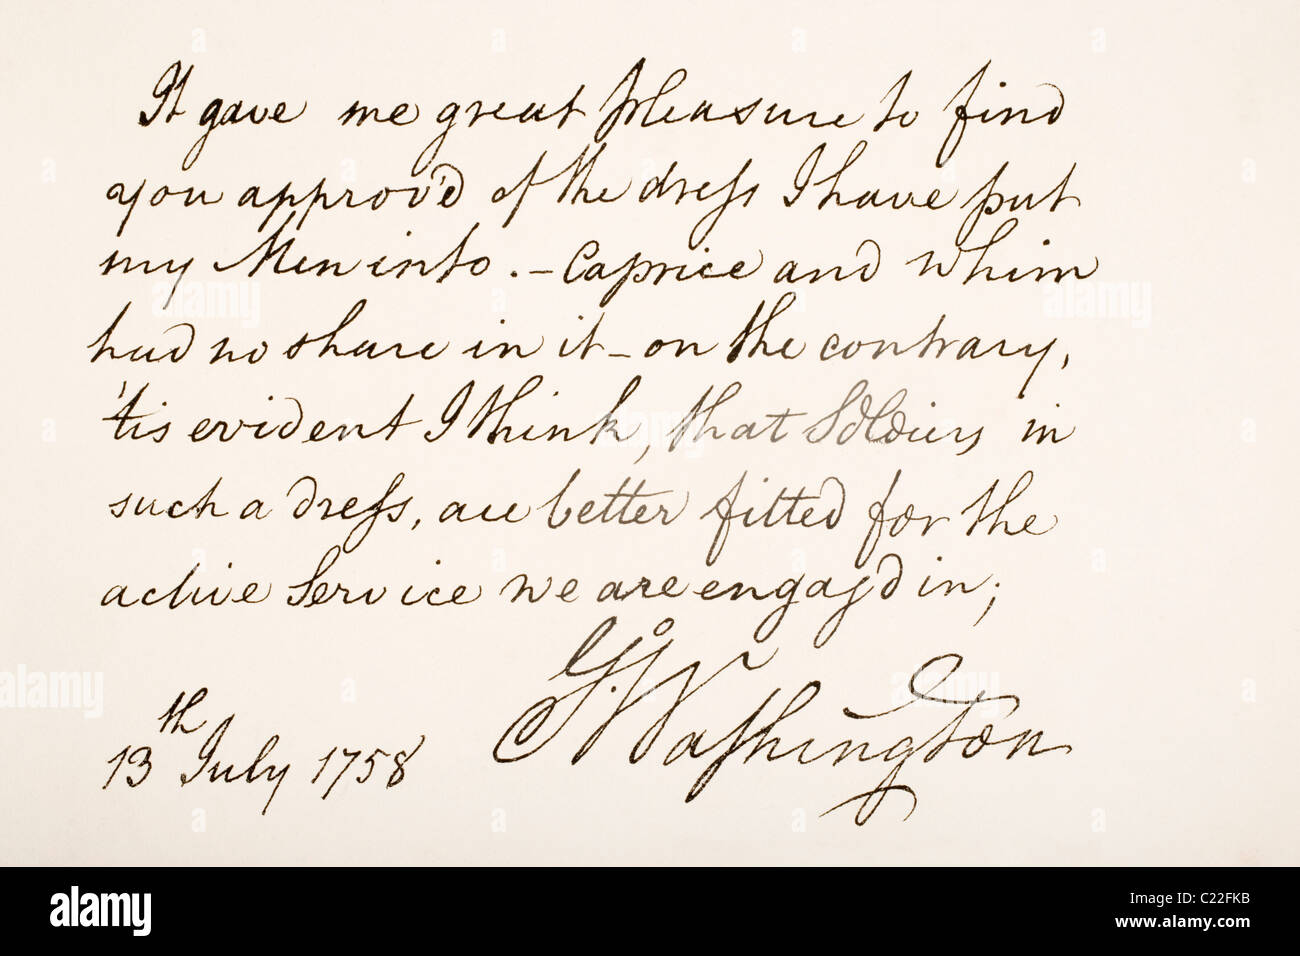 It gave me great pleasure to find
you approv'd of the dress I have put
my Men into. – Caprice and whim
had no share in it – on the contrary,
'tis evident I think, that Soldiers in
such a dress, are better fitted for the
active Service we are engag'd in;
Go. Washington
13th July 1758
alamy
Image ID: C22FKB
www.alamy.com